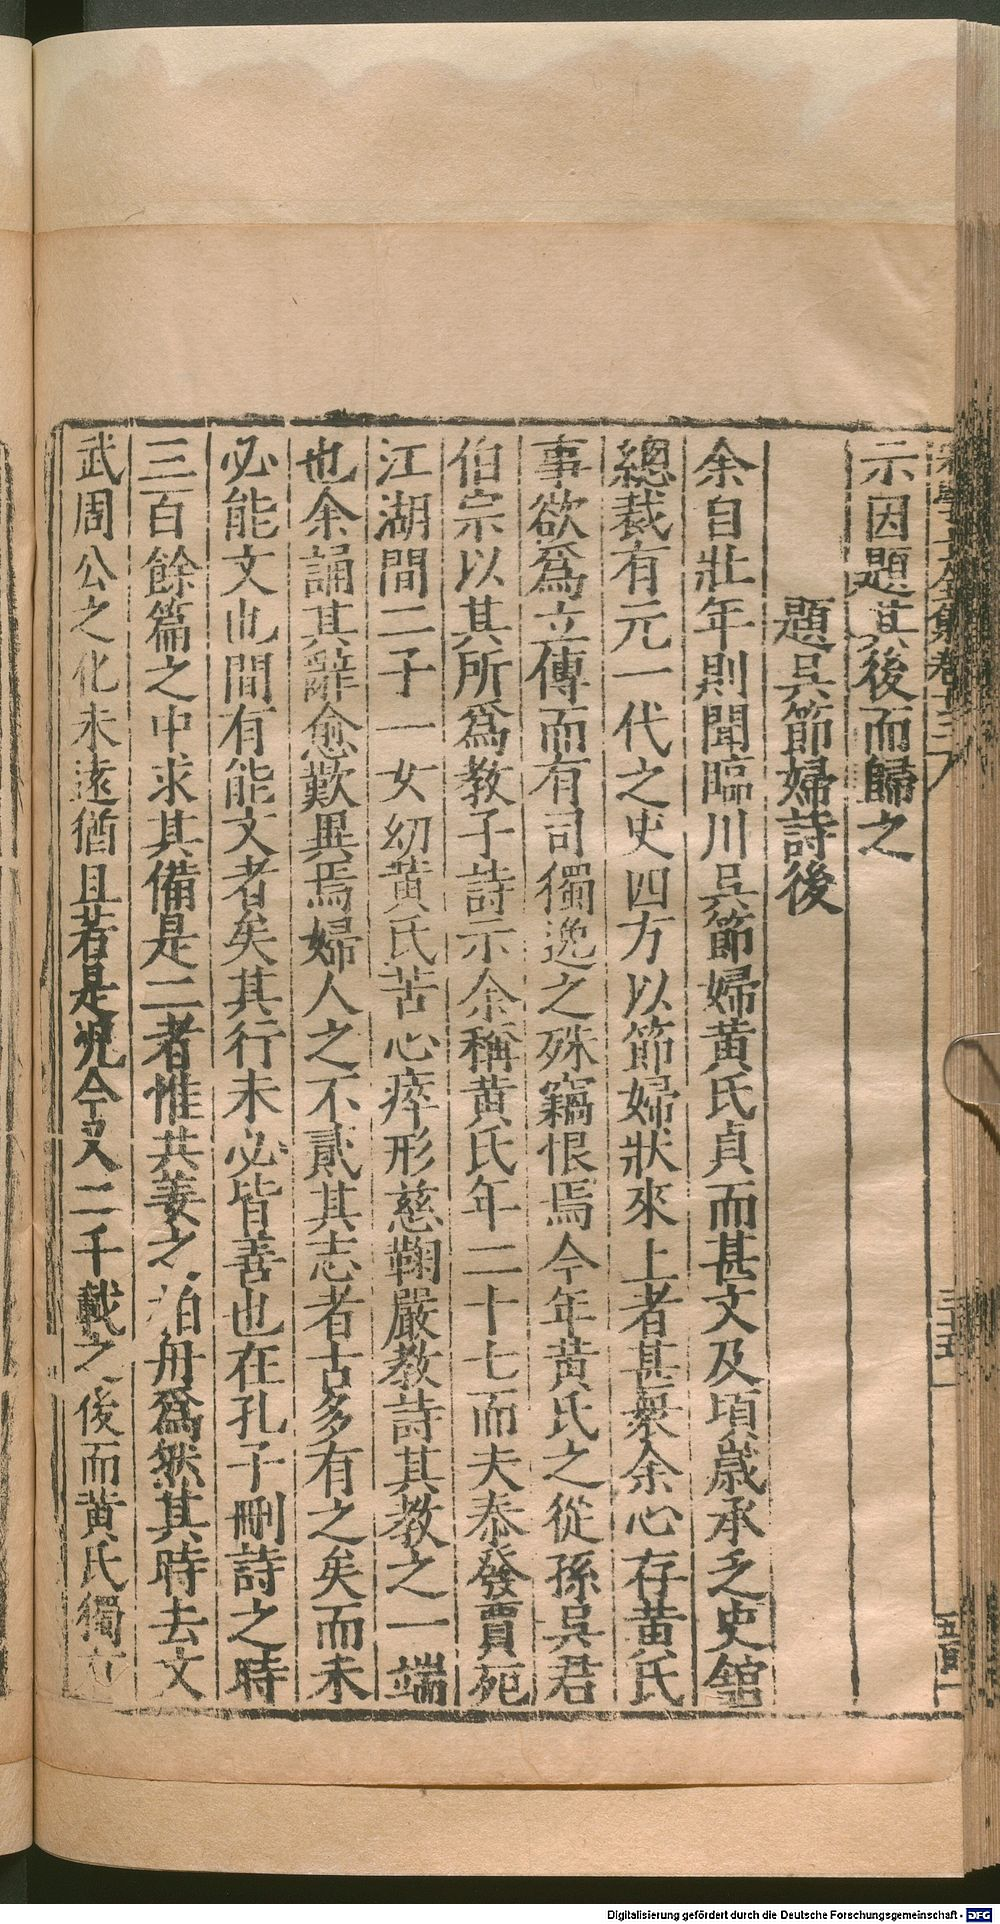 示因題其後而歸之
題吳節婦詩後
余自壯年則聞臨川吳節婦黃氏貞而甚文及頃歲承乏史館
總裁有元一代之史四方以節婦狀來上者甚衆余心存黃氏
事欲爲立傳而有司獨逸之殊竊恨焉今年黃氏之從孫吳君
伯宗以其所爲教子詩示余稱黃氏年二十七而夫泰發賈死
江湖間二子一女幼黃氏苦心瘁形慈鞠嚴教詩其教之一端
也余誦其辭愈歎異焉婦人之不貳其志者古多有之矣而未
必能文也間有能文者矣其行未必皆善也在孔子刪詩之時
三百餘篇之中求其備是二者惟共姜之柏舟爲然其時去文
武周公之化未遠猶且若是况今又二千載之後而黃氏獨
Digitalisierung gefördert durch die Deutsche Forschungsgemeinschaft - DFG